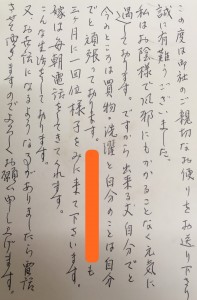 この度は御社のご親切なお便りをお送り下さり
誠に有難うございました。
私はお陰様で風邪にもかかることなく元気に
過しております。ですから出来る丈自分でと
今のところは買物・洗濯と自分のことは自分
でと頑張っております。も
三ヶ月に一回位様子をみに来て下さいます。
嫁は毎朝電話をしてきてくれます。
こんな生活をしております。
又、お世話になるようなことがありましたら電話
させて頂きますのでよろしくお願い申し上げます。